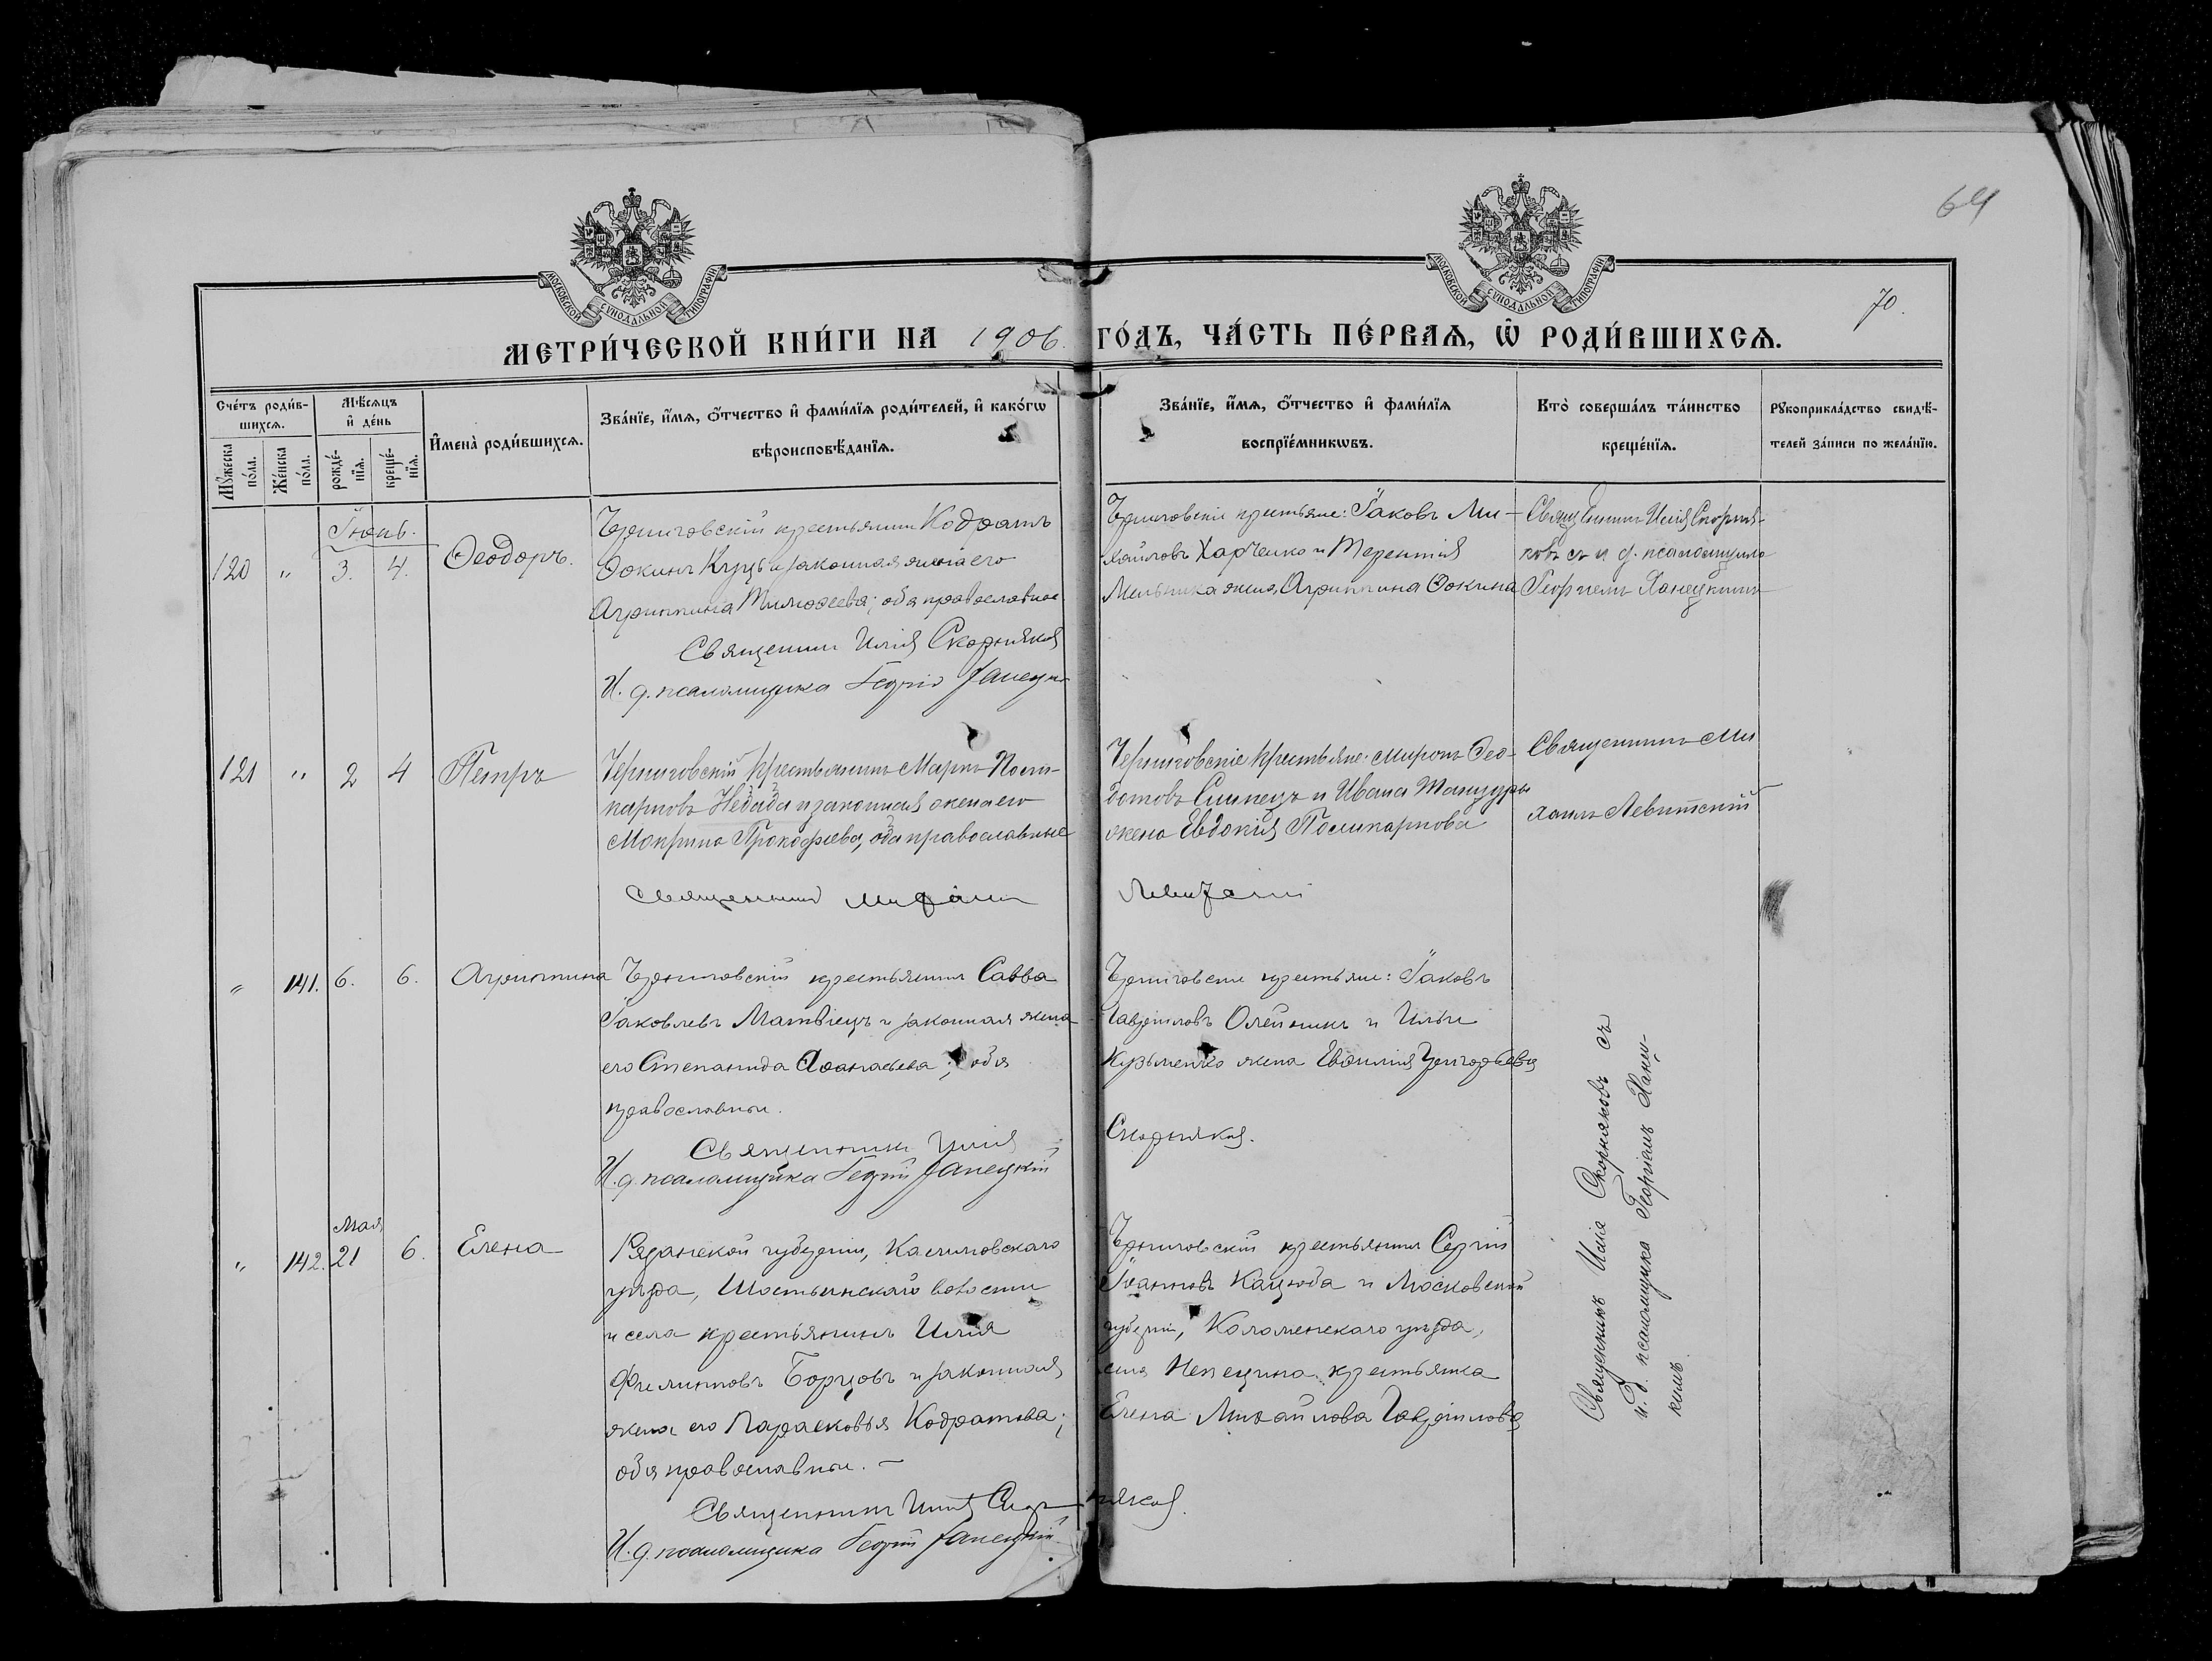 64
70.
МОСКОВСКОЙ СѴНОДАЛЬНОЙ ТИПОГРАФІИ
МОСКОВСКОЙ СѴНОДАЛЬНОЙ ТИПОГРАФІИ
МЕТРИ́ЧЕСКОЙ КНИ́ГИ НА 1906. ГО́ДЪ, ЧА́СТЬ ПЕ́РВАѦ, Ѡ҆ РОДИ́ВШИХСѦ.
Сче́тъ роди́в-
шихсѧ.
Мꙋ́жеска
по́ла.
Же́нска
по́ла.
Мѣ́сѧцъ
и҆ де́нь
рожде́-
нїѧ.
креще́-
нїѧ.
И҆мена̀ роди́вшихсѧ.
Зва́нїе, и҆́мѧ, ѻ҆́тчество и҆ фами́лїѧ роди́телей, и҆ како́гѡ
вѣроисповѣ́данїѧ.
Зва́нїе, и҆́мѧ, ѻ҆́тчество и҆ фами́лїѧ
воспрїе́мникѡвъ.
Кто̀ соверша́лъ та́инство
креще́нїѧ.
Рꙋкоприкла́дство свидѣ́-
телей за́писи по жела́нїю.
Іюнь.
120 „ 3. 4. Ѳеодоръ.
Черниговскій крестьянинъ Кодратъ
Ѳокинъ и законная жена его
Агриппина Тимоѳеева; оба православные
Священникъ Илія Скорняковъ
И. д. псаломщика Георгій Ханецкій
Черниговскіе крестьяне: Іаковъ Ми-
хайловъ Харченко и Терентія
Мельника жена Агриппина Ѳокина
Священникъ Илія Скорня-
ковъ съ и д. псаломщика
Георгіемъ Ханецкимъ
121 „ 2 4 Петръ
Черниговскій крестьянинъ Маркъ Поли-
карповъ Недада и законная жена его
Мокрина Прокофіева, оба православные
Священникъ Михаилъ Левитскій
Черниговскіе крестьяне: Миронъ Ѳео-
дотовъ Слипецъ и Ивана Танцуры
жена Евдокія Поликарпова
Священникъ Ми
хаилъ Левитскій
„ 141. 6. 6. Агриппина
Черниговскій крестьянинъ Савва
Іаковлевъ Матвіецъ и законная жена
его Степанида Аѳанасьева; оба
православные.
Священникъ Илія Скорняковъ.
И. д. псаломщика Георгій Ханецкій
Черниговскіе крестьяне: Іаковъ
Гавріиловъ Олейникъ и Ильи
Кузьменко жена Евѳимія Григорьева
Мая
„ 142. 21 6. Елена
Рязанской губерніи, Касимовскаго
уѣзда, Шостьинскаго волости
и села крестьянинъ Илія
Филипповъ Борцовъ и законная
жена его Парасковья Кодратова;
оба православные. —
Священникъ Илія Скорняковъ.
И. д. псаломщика Георгій Ханецкій
Черниговскій крестьянинъ Сергій
Іоанновъ Кацюба и Московской
губерніи, Коломенскаго уѣзда,
села Непецина, крестьянка
Елена Михайлова Гавріилова
Священникъ Илія Скорняковъ съ
и. д. псаломщика Георгіемъ Ханец-
кимъ.